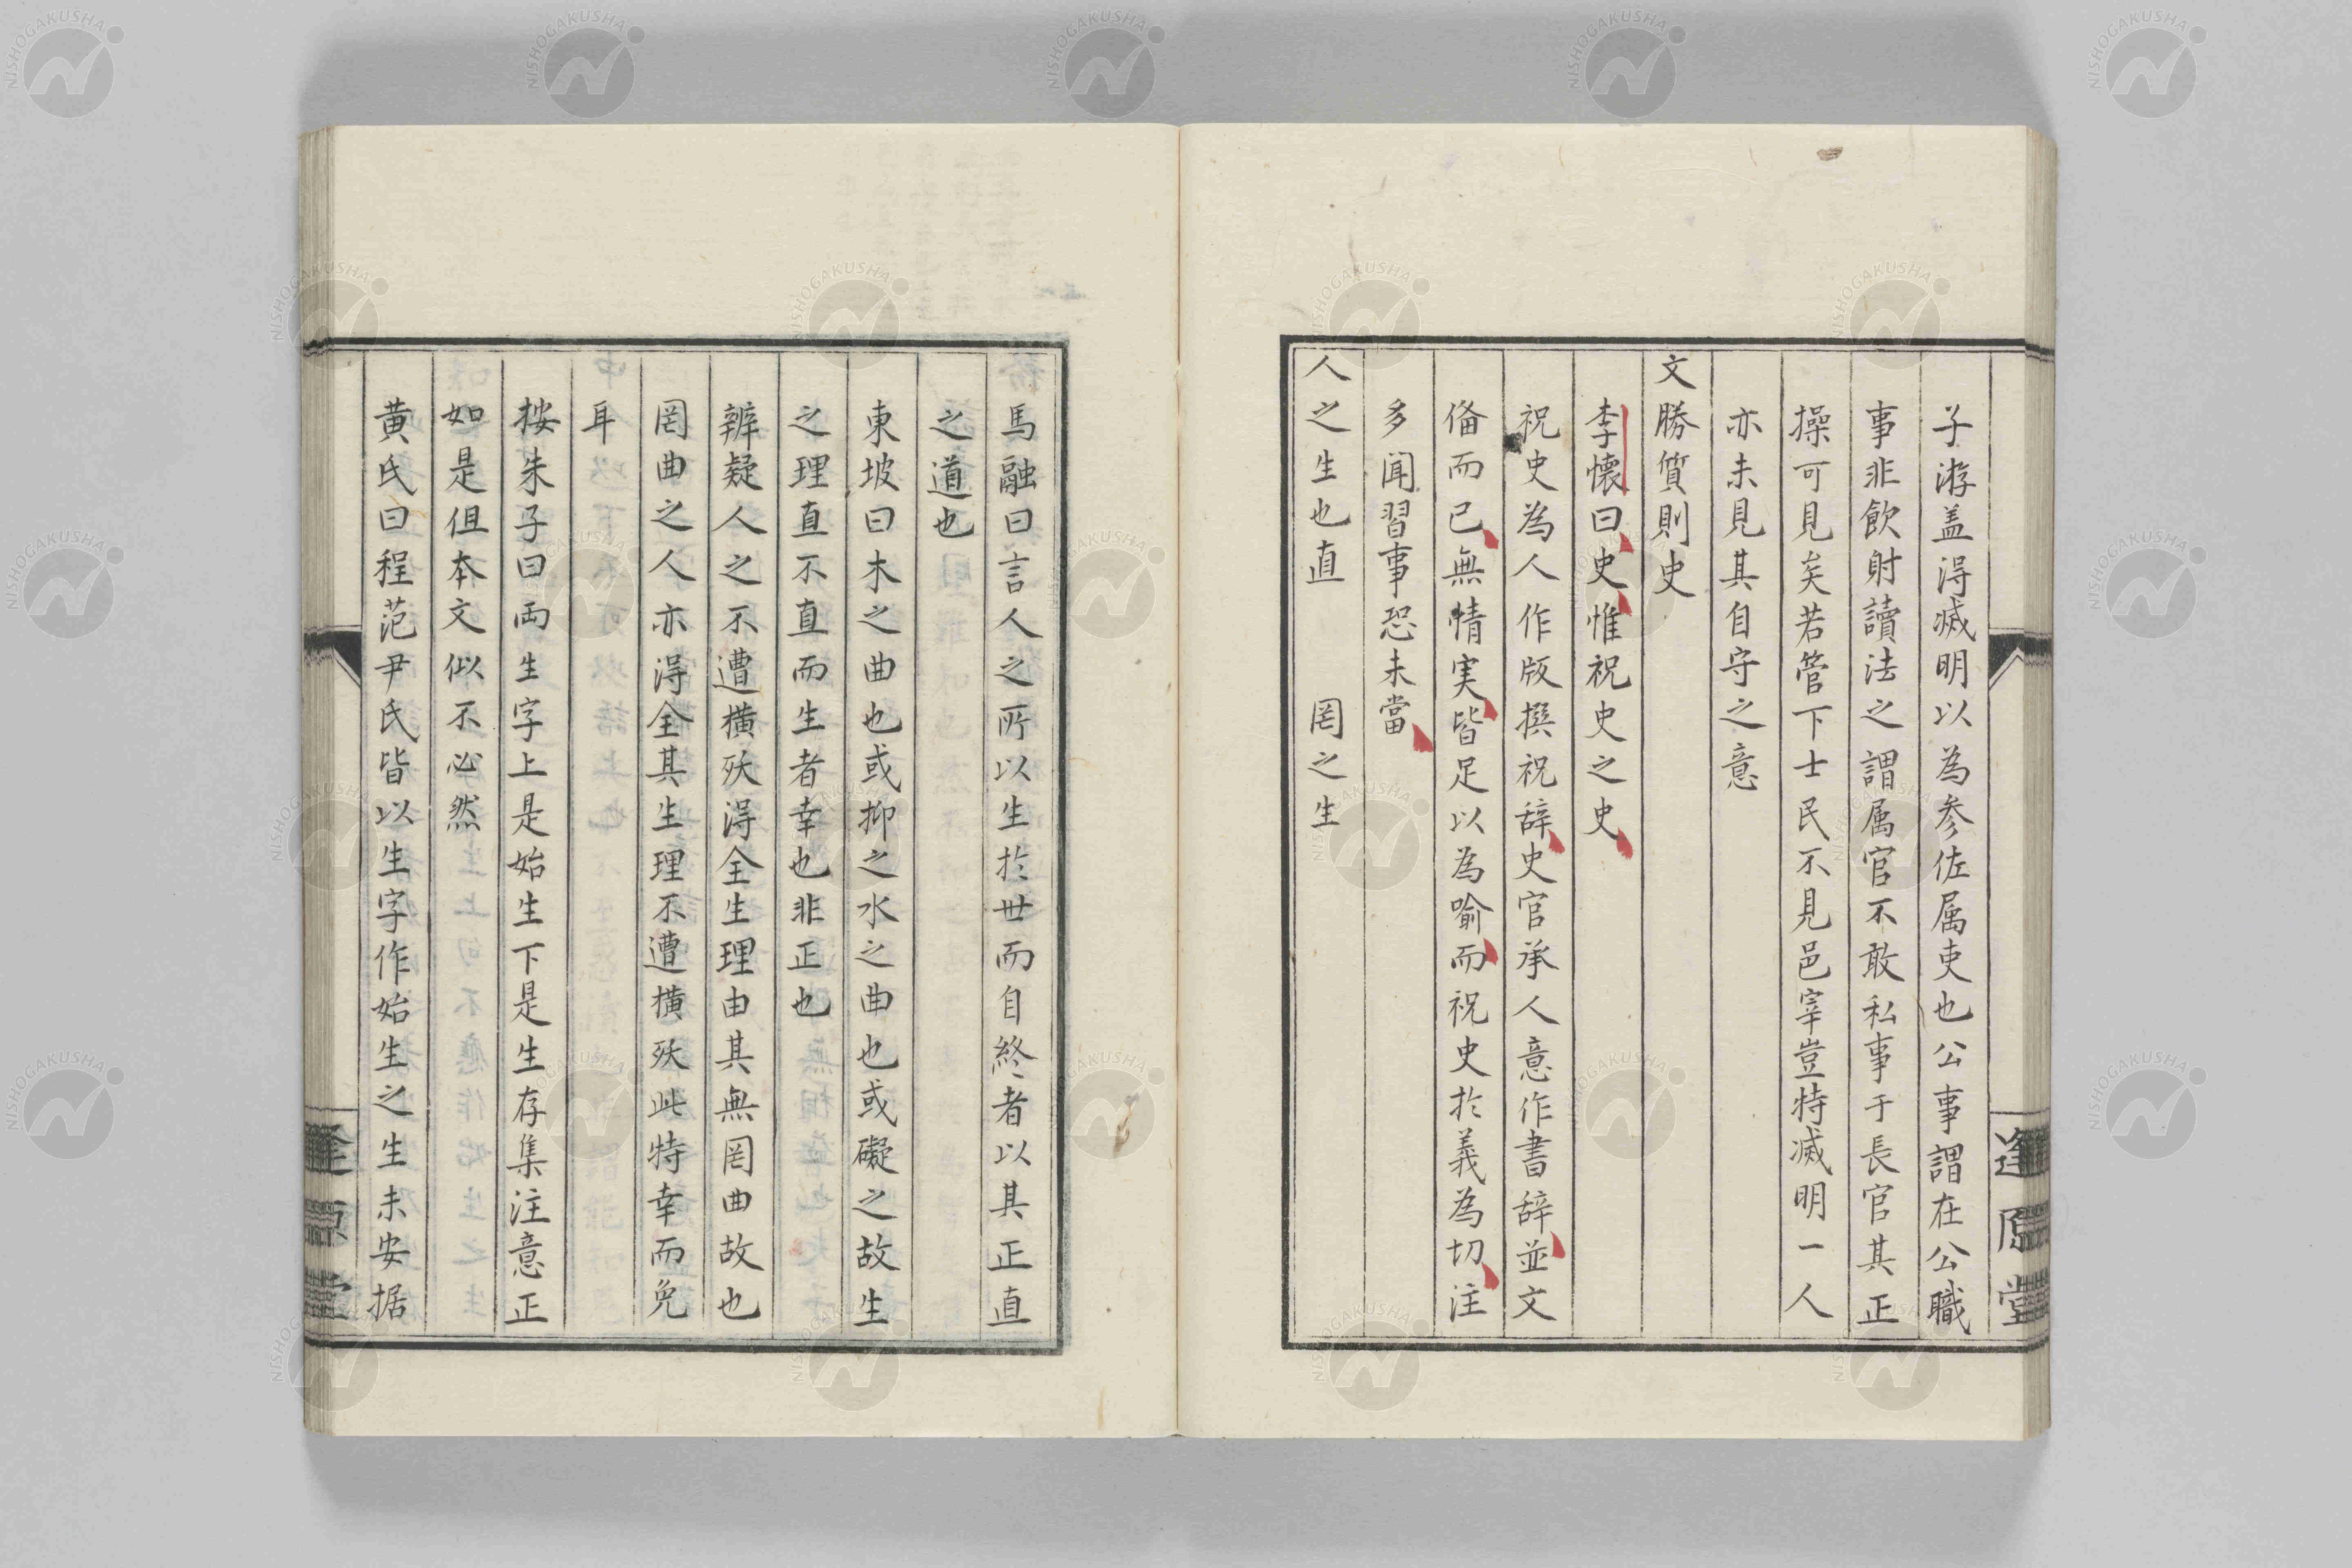 子游盖得滅明以為参佐属吏也公事謂在公職
事非飲射讀法之謂属官不敢私事于長官其正
操可見矣若管下士民不見邑宰豈特滅明一人
亦未見其自守之意
文勝質則史
李懷曰史惟祝史之史
祝史為人作版撰祝辞史官承人意作書辞並文
俻而已無情実皆足以為喻而祝史於義為切注
多聞習事恐未當
人之生也直 罔之生
逢原堂
馬融曰言人之所以生於世而自終者以其正直
之道也
東坡曰木之曲也或抑之水之曲也或礙之故生
之理直不直而生者幸也非正也
辨疑人之不遭横殀得全生理由其無罔曲故也
罔曲之人亦得全其生理不遭横殀此特幸而免
耳
桉朱子曰両生字上是始生下是生存集注意正
如是但本文似不必然
黄氏曰程范尹氏皆以生字作始生之生未安据
逢原堂
NISHOGAKUSHA